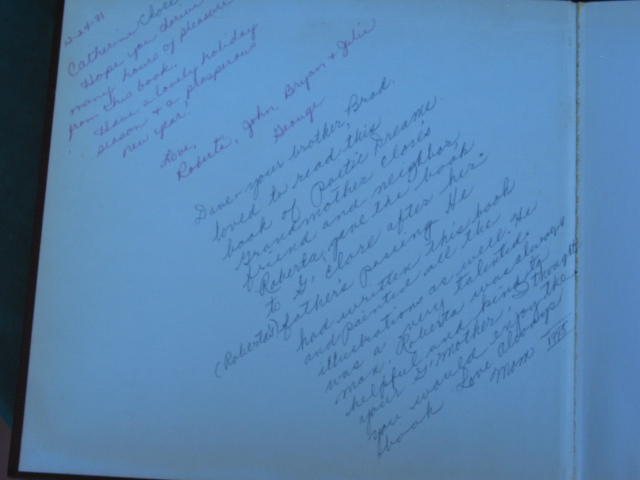 12-24-71
Catherine Close
Hope you derive
many hours of pleasure
from this book.
Have a lovely holiday
season & a prosperous
new year.
Love,
Roberta, John, Bryan & Julie
George
Dave - your brother, Brad.
loved to read this
book of Poetic Dreams.
Grandmother Close's
friend and neighbor,
Roberta, gave the book
to G. Close after her
(Roberta's) father's passing. He
had written this book
and painted all the
illustrations as well. He
was a very talented
man. Roberta was always
helpful and kind to
your G. Mother. I thought
you would enjoy the
book Love always
Mom